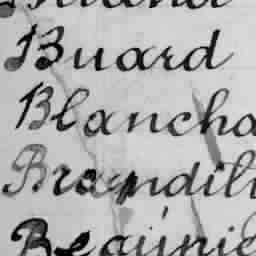 Buard
Blancha
Brandili
Beaunie